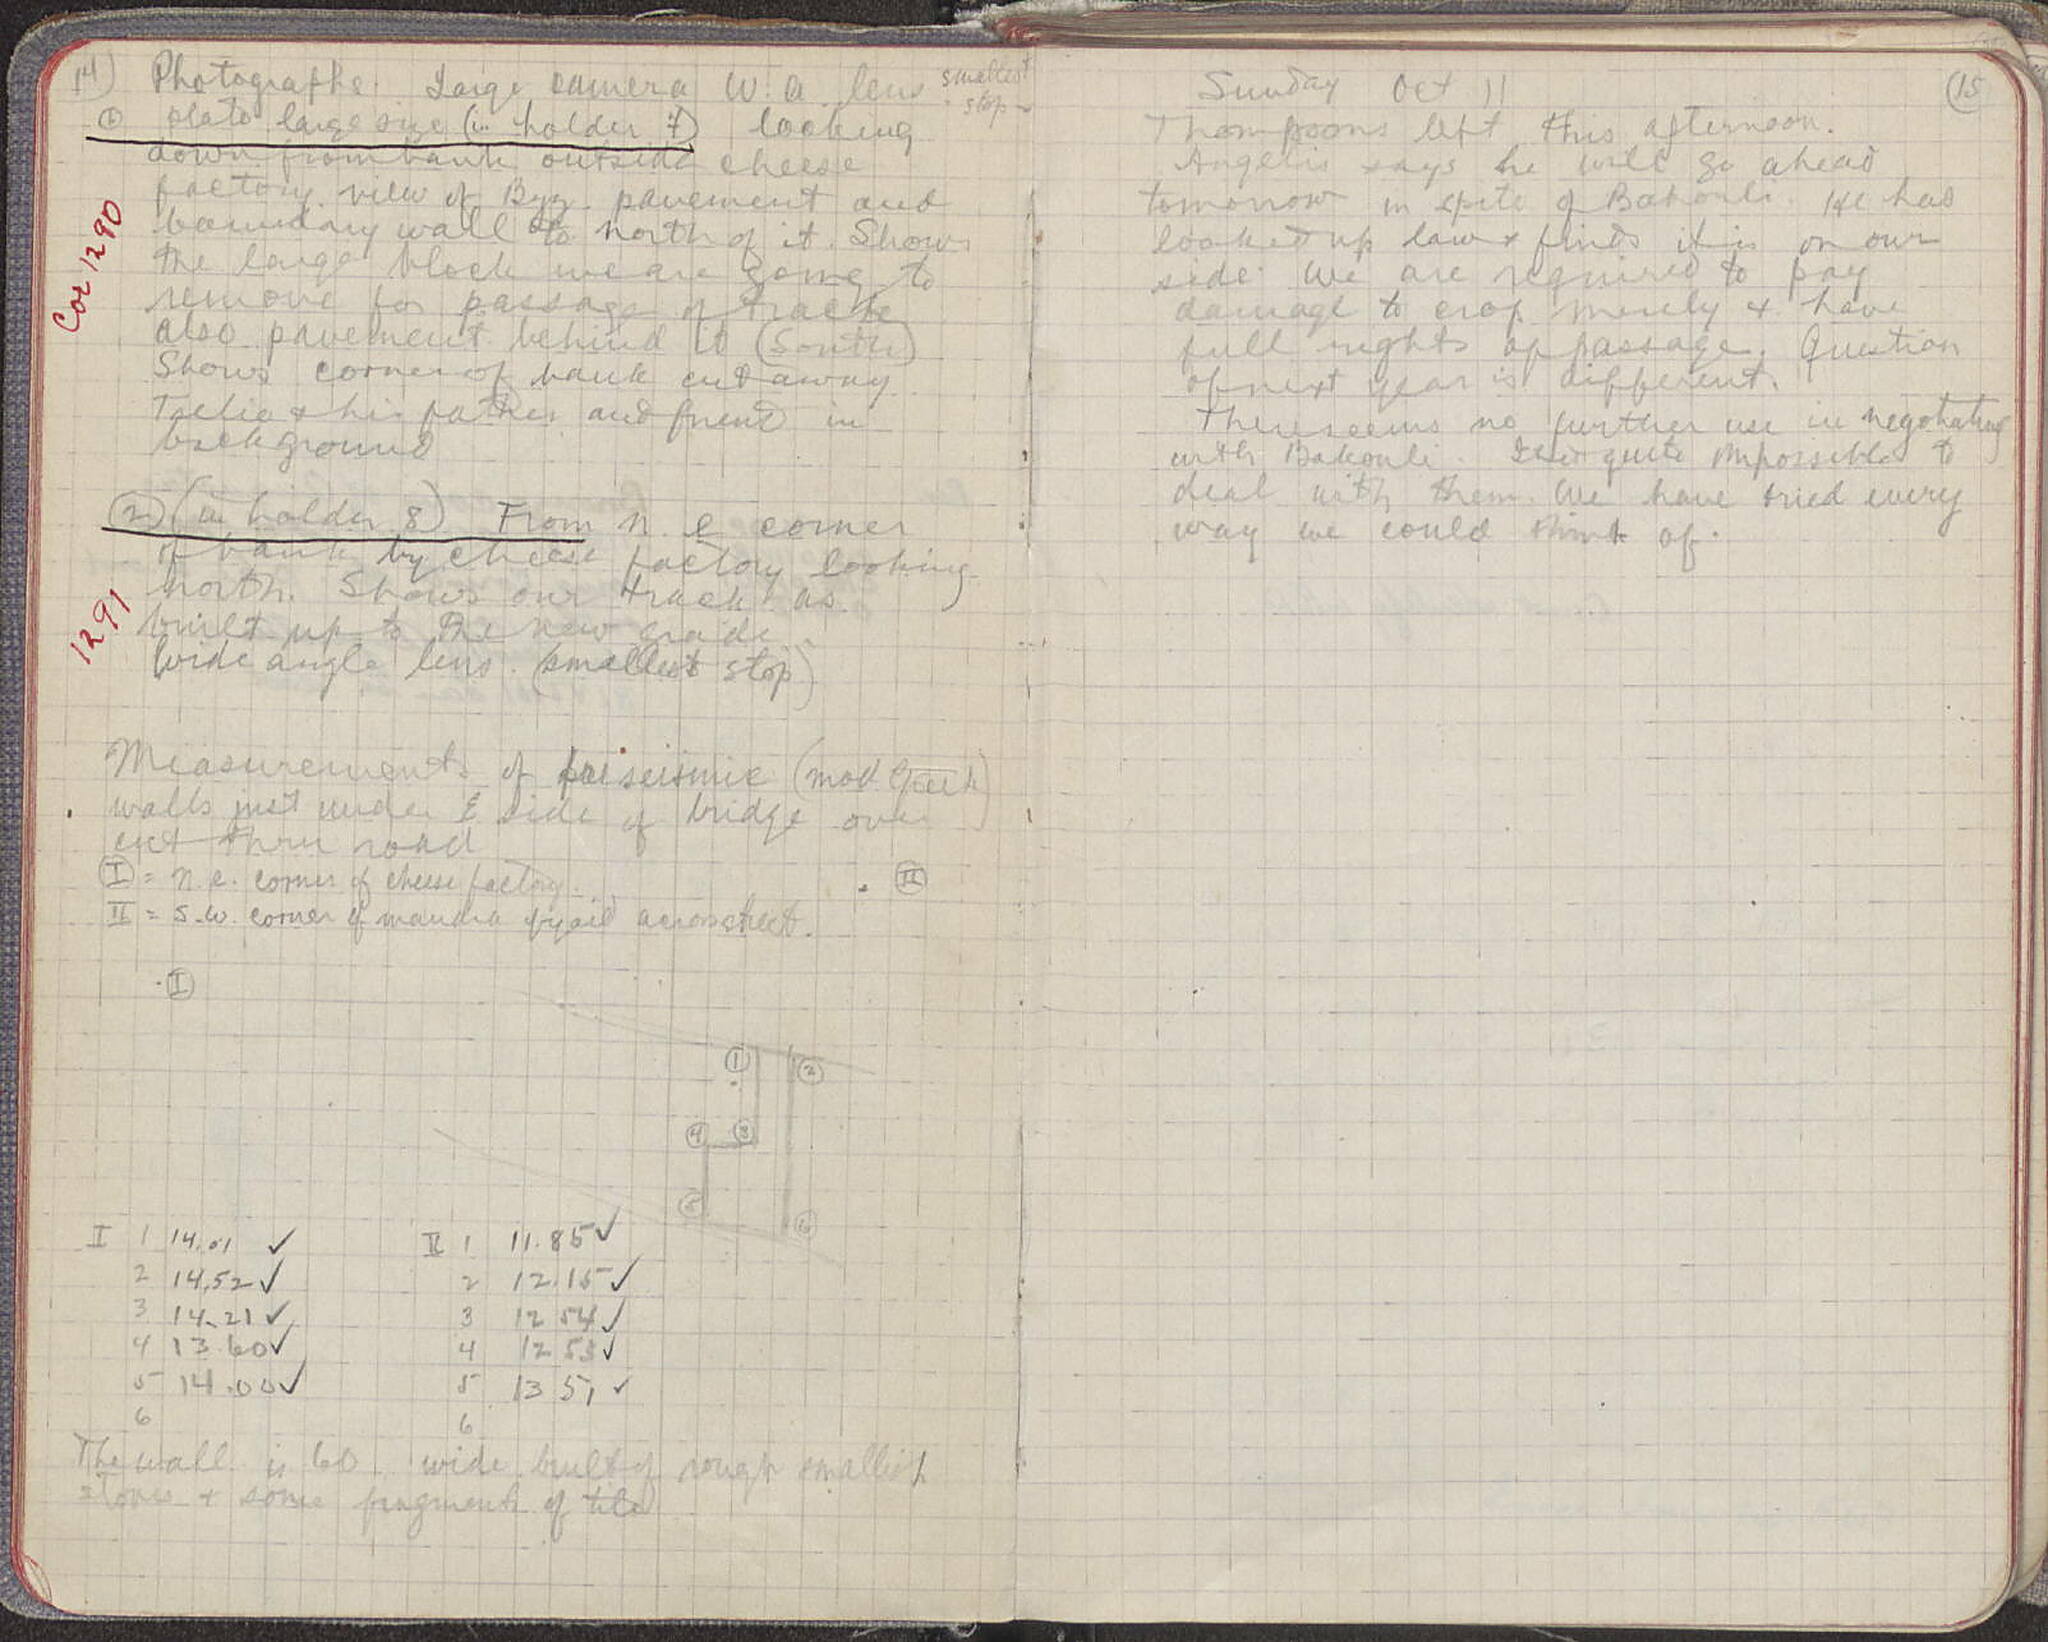 14)
Photographs. Large camera W. a. lens smallest stop
① plate large size (in holder 7) looking
down from bank outside cheese
factory. view of Byz. pavement and
boundary wall to north of it. Shows
the large block we are going to
remove for passage of track
also pavement behind it (South)
Shows corner of bank cut away
Tselio & his father and friend in
background
Cor 1290
② (in holder 8) From n. e corner
of bank by cheese factory looking
north. Shows our track as
built up to the new grade.
Wide angle lens. (smallest stop)
1291
Measurements of preseismic (mod Greek)
walls just under E side of bridge over
cut thru road
Ⓘ = n. e. corner of cheese factory.
II = s.w. corner of mandra yard across street.
II
I
1
2
4 3
5
6
I 1 14.01 ✓ II 1 11.85 ✓
2 14.52 ✓ 2 12.15 ✓
3 14.21 ✓ 3 12 54 ✓
4 13.60 ✓ 4 12 53 ✓
5 14.00 ✓ 5 13 51 ✓
6 6
The wall is 60 wide built of rough smallish
stones & some fragments of tile
15
Sunday Oct 11
Thompsons left this afternoon.
Angelis says he will go ahead
tomorrow in spite of Bakouli. He has
looked up law & finds it is on our
side. We are required to pay
damage to crop merely & have
full rights of passage. Question
of next year is different.
There seems no further use in negotiating
with Bakouli. It is quite impossible to
deal with them. We have tried every
way we could think of.